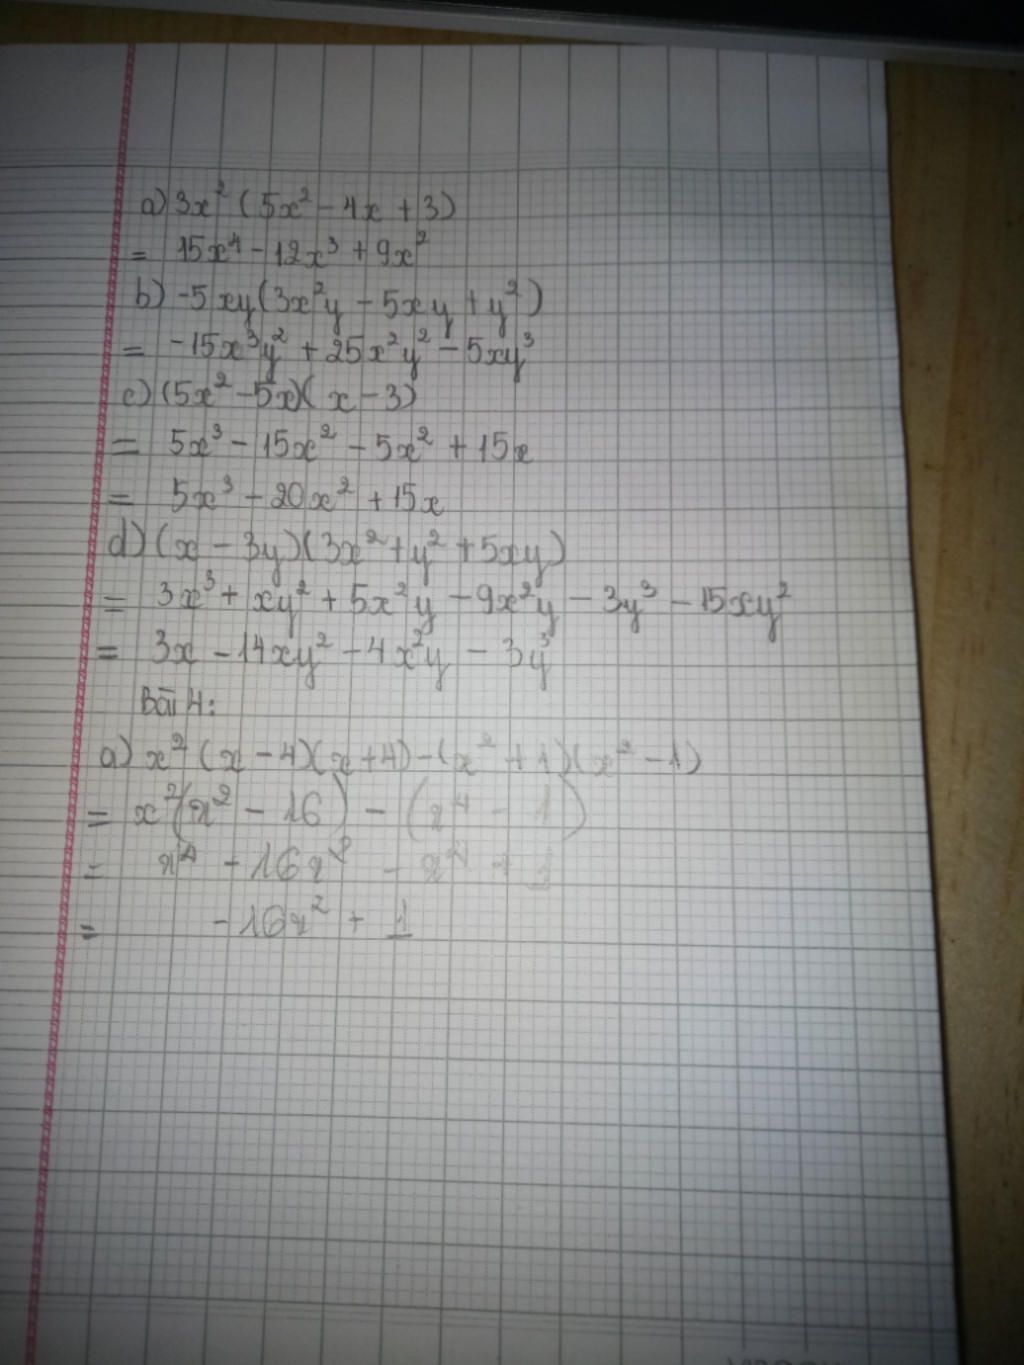 a) 3x² (5x² - 4x + 3)
= 15x⁴ - 12x³ + 9x²
b) -5xy(3x²y - 5xy + y²)
= -15x³y² + 25x²y² - 5xy³
c) (5x² - 5x)(x - 3)
= 5x³ - 15x² - 5x² + 15x
= 5x³ - 20x² + 15x
d) (x - 3y)(3x² + y² + 5xy)
= 3x³ + xy² + 5x²y - 9x²y - 3y³ - 15xy²
= 3x - 14xy² - 4x²y - 3y³
Bài 4:
a) x² (x - 4)(x + 4) - (x² + 1)(x² - 1)
= x²(x² - 16) - (x⁴ - 1)
= x⁴ - 16x² - x⁴ + 1
= - 16x² + 1